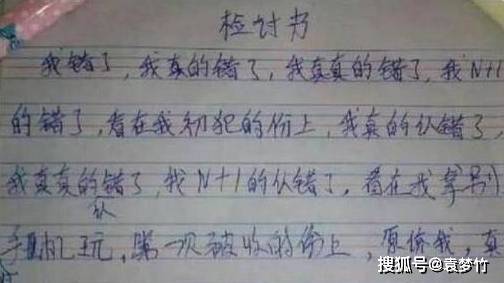 检讨书
我错了，我真的错了，我真真的错了，我N+1
的错了，看在我初犯的份上，我真的认错了
我真真的错了，我N+1的认错了，看在我拿别
认
手机玩，第一次被收的份上，原谅我，真
搜狐号@袁梦竹